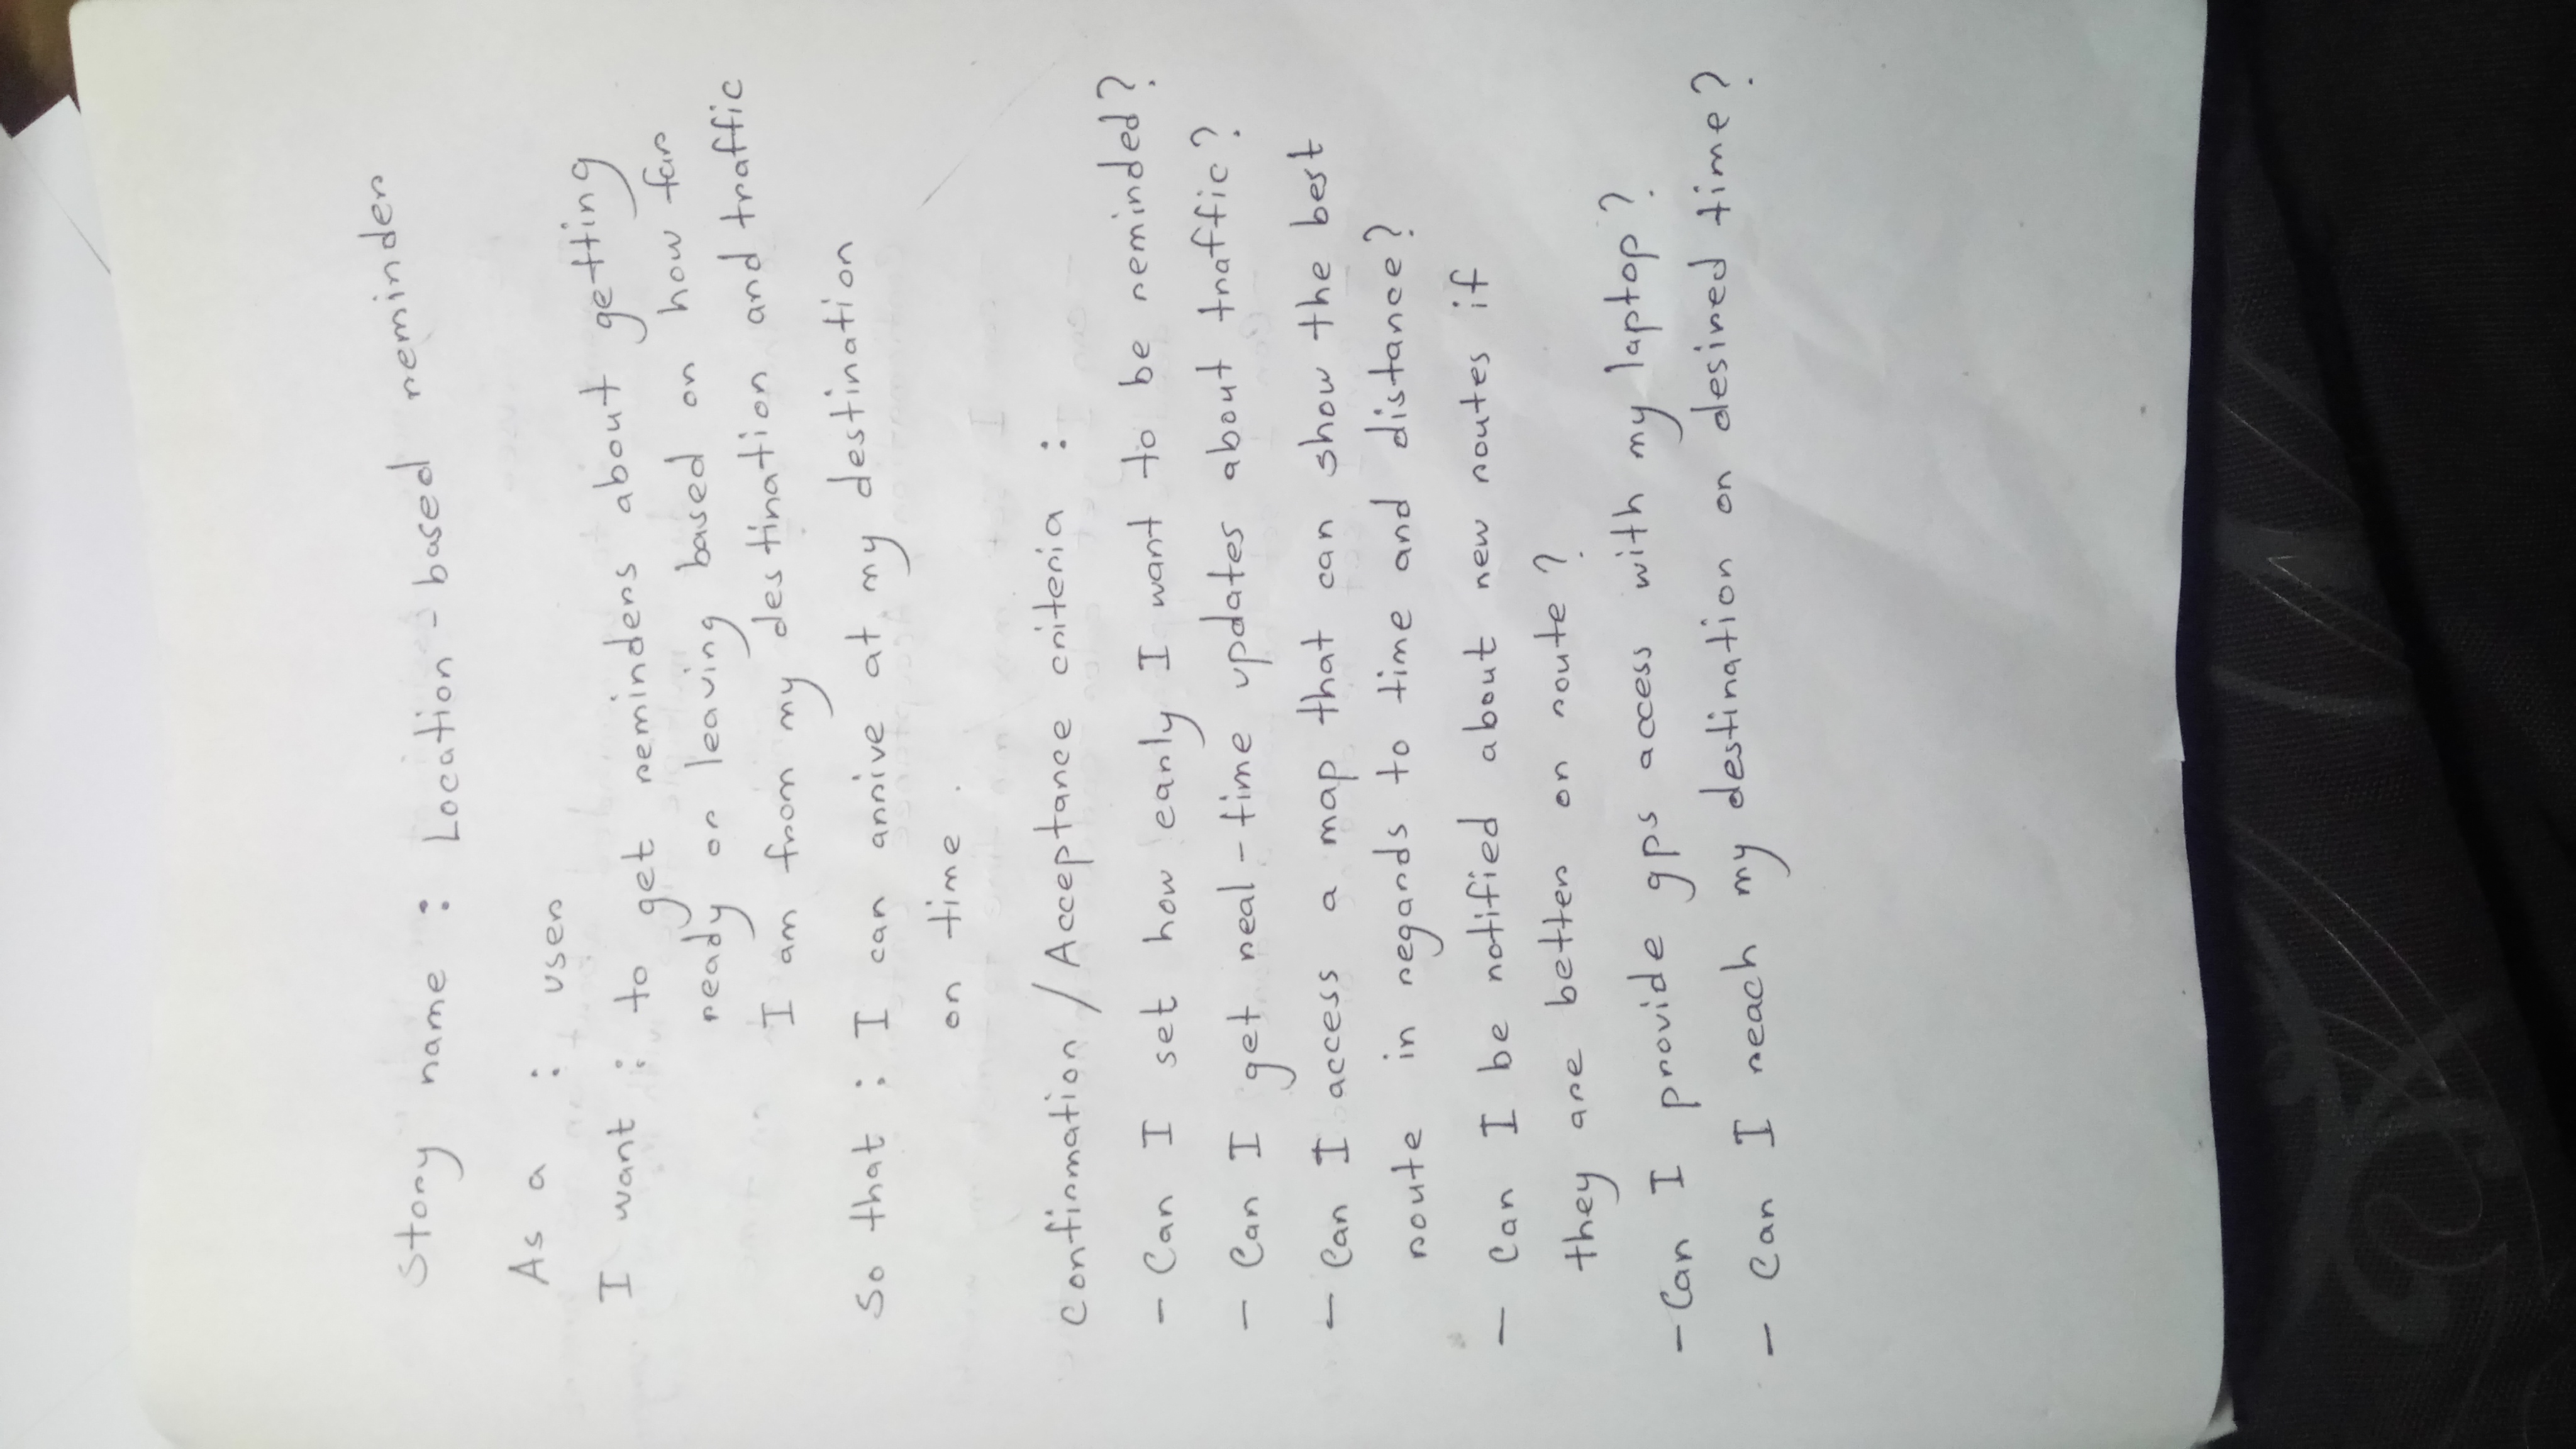 Story name : Location-based reminder
As a : user
I want : to get reminders about getting
ready or leaving based on how far
I am from my destination and traffic
So that : I can arrive at my destination
on time.
Confirmation / Acceptance criteria :
- Can I set how early I want to be reminded?
- Can I get real-time updates about traffic?
- Can I access a map that can show the best
route in regards to time and distance?
- Can I be notified about new routes if
they are better on route?
- Can I provide gps access with my laptop?
- Can I reach my destination on desired time?